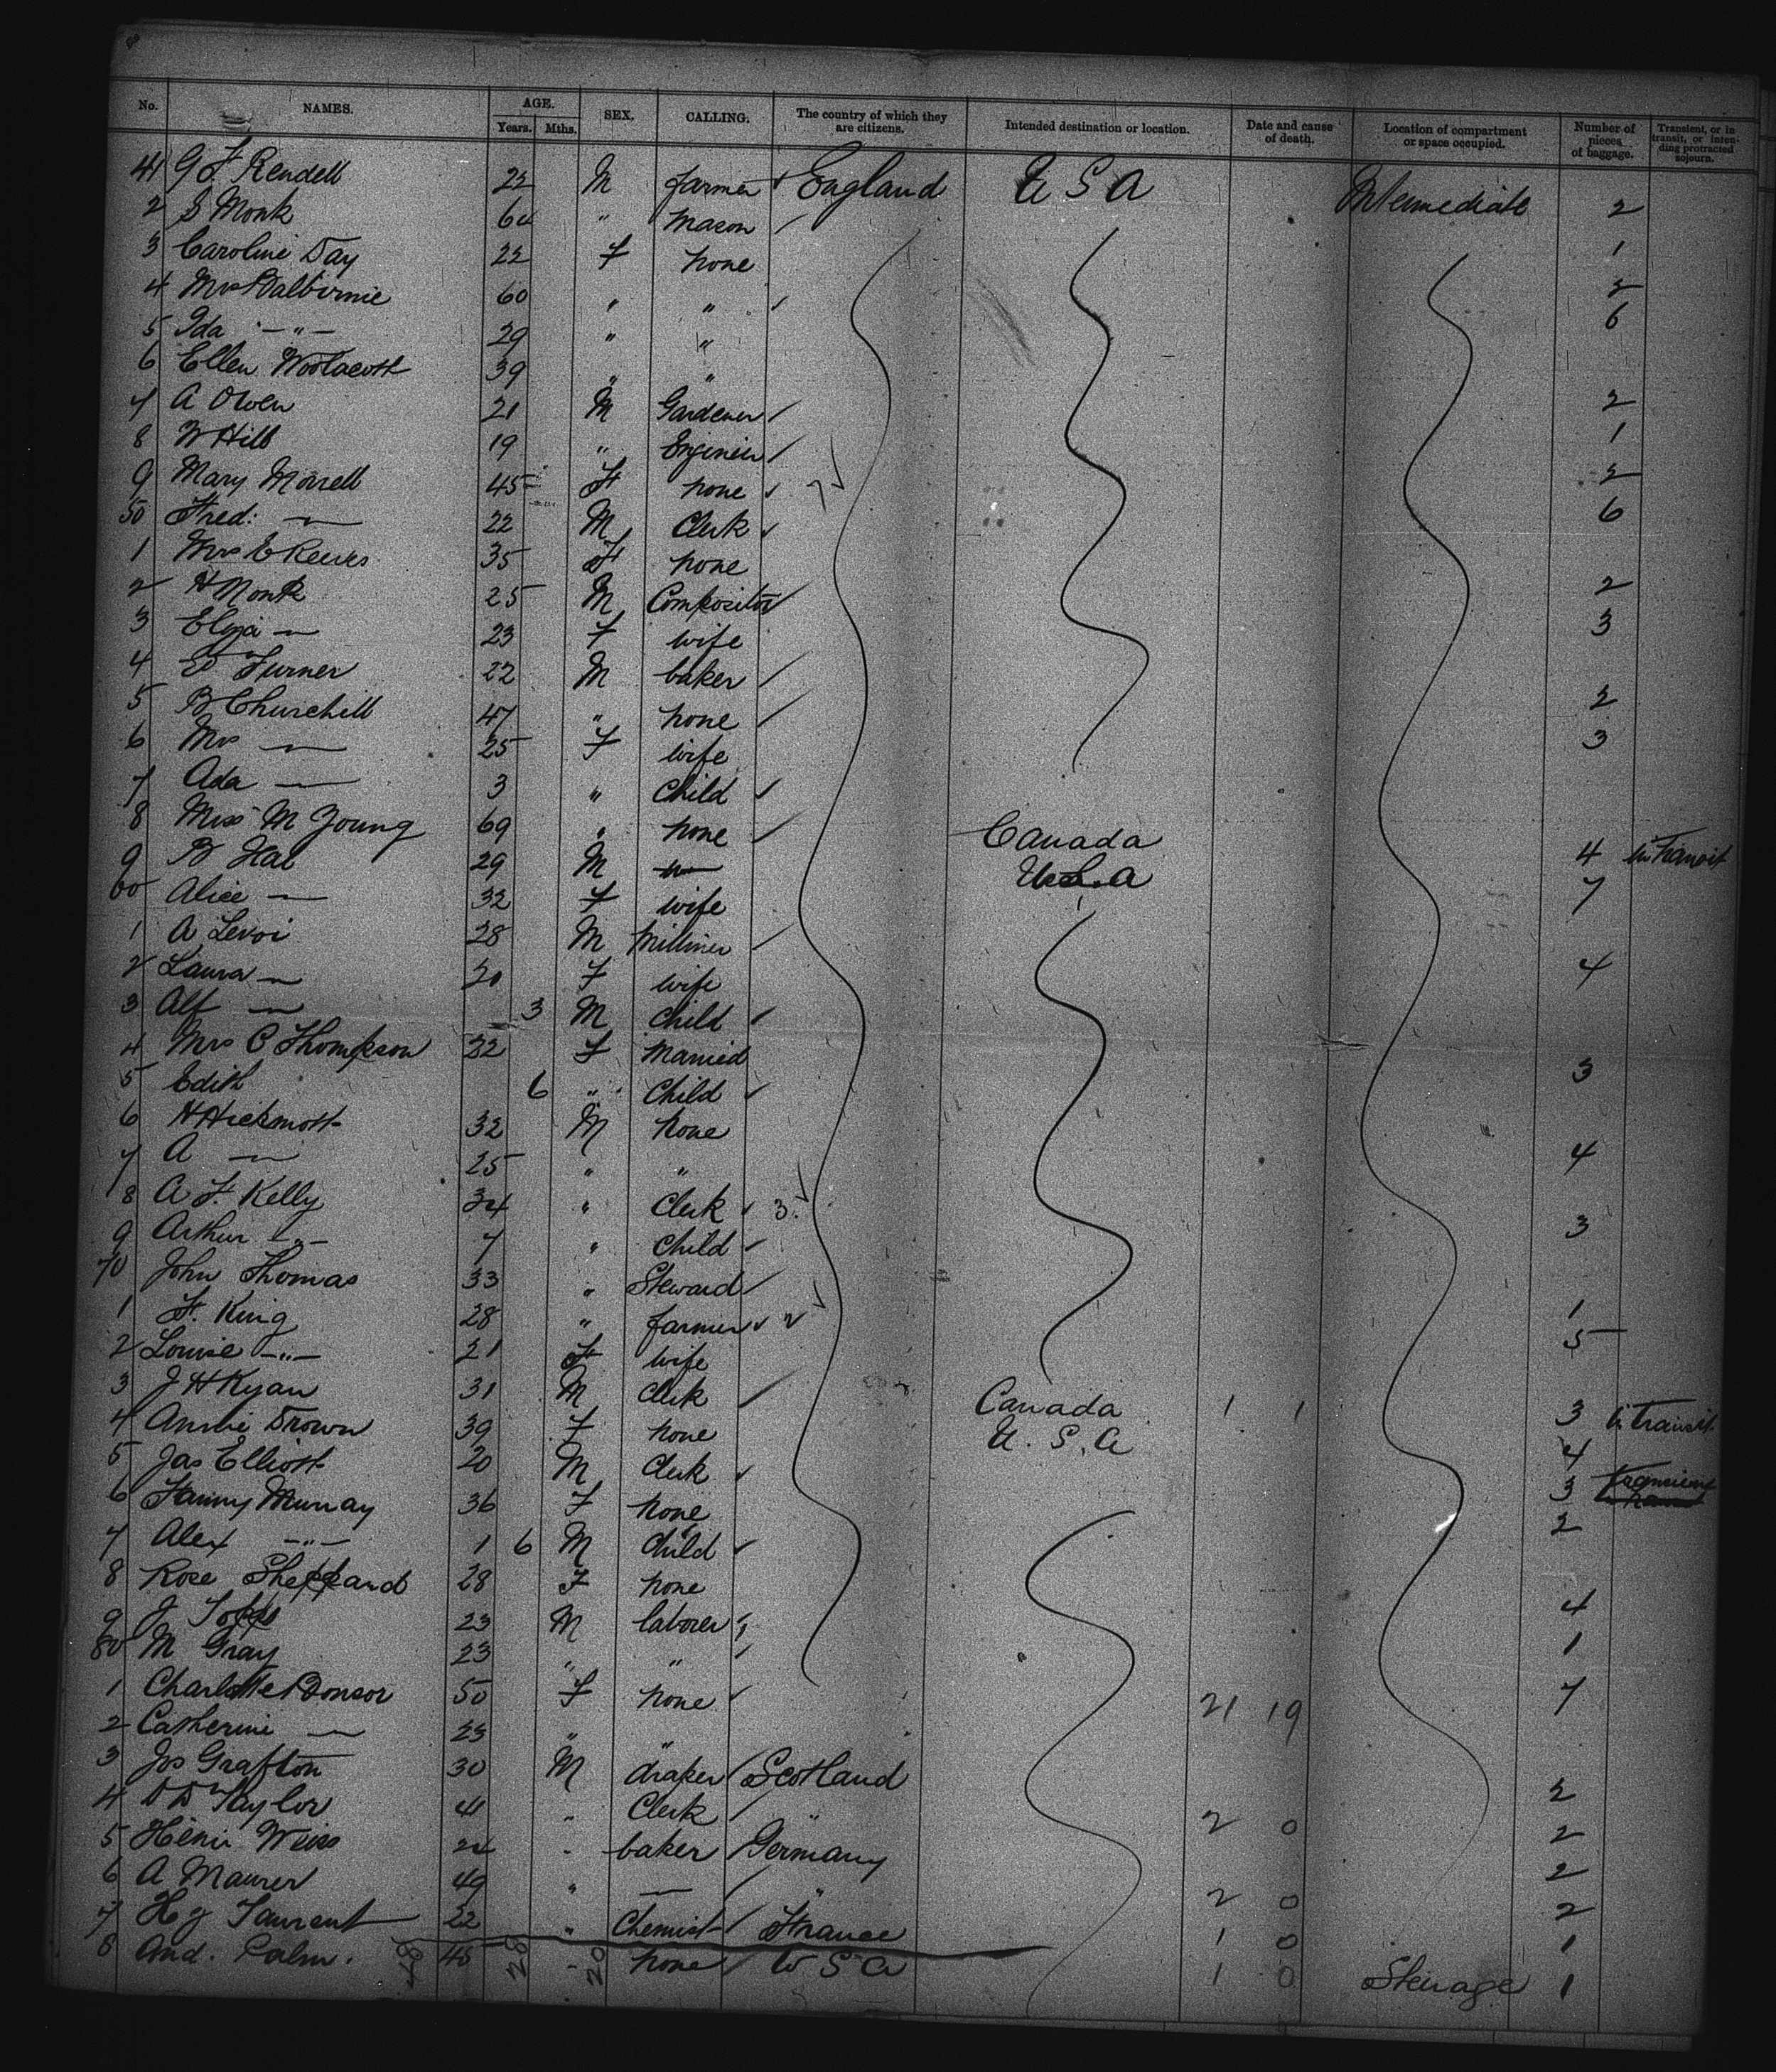 No. NAMES. AGE. Years. Mths. SEX. CALLING. The country of which they are citizens. Intended destination or location. Date and cause of death. Location of compartment or space occupied. Number of pieces of baggage. Transient, or in transit, or intending protracted sojourn.
41 G F Rendell 22 M farmer England U S A Intermediate 2
2 S Monk 64 " Mason 1
3 Caroline Day 22 F none 2
4 Mrs Balbirnie 60 " " 6
5 Ida -"- 29 " "
6 Ellen Woolacott 39 " " 2
7 A Owen 21 M Gardener 1
8 W Hill 19 " Engineer 2
9 Mary Morrell 45 F none 6
50 Fred: — 22 M Clerk
1 Mrs E Reeves 35 F none 2
2 H Monk 25 M Compositor 3
3 Eliza — 23 F wife
4 Turner 22 M baker 2
5 B Churchill 47 " none 3
6 Mrs — 25 F wife
7 Ada — 3 " Child
8 Miss M Young 69 " none Canada 4 in Transit
9 B 29 M — U.S.A 7
60 Alice — 32 F wife
1 A Levoi 28 M Milliner 4
2 Laura — 20 F wife
3 Alf — 3 M Child
4 Mrs C Thompson 22 F Married 3
5 Edith 6 " Child
6 H Hickmott 32 M none 4
7 A — 25 " "
8 A F. Kelly 34 " Clerk 3. 3
9 Arthur -"- 7 " Child
70 John Thomas 33 " Steward 1
1 F. King 28 " farmer 2 5
2 Louise -"- 21 F wife
3 J H Ryan 31 M Clerk Canada 1 1 3 in transit
4 Annie Brown 39 F none U. S. A 4
5 Jas Elliott 20 M Clerk 3 transient
6 Fanny Murray 36 F none 2
7 Alex -"- 1 6 M Child
8 Rose Sheppard 28 F none 4
9 J 23 M laborer 1
80 M Gray 23 " "
1 Charlotte Bonsor 50 F none 21 19 7
2 Catherine — 23 " "
3 Jos Grafton 30 M draper Scotland 2
4 D D Taylor 41 " Clerk " 2 0 2
5 Henri Weiss 24 " baker Germany 2
6 A Maurer 49 " — " 2 0 2
7 H J Laurent 22 " Chemist France 1 0 1
8 And. Palm. 48 45 28 " 20 none U S A 1 0 Steerage 1